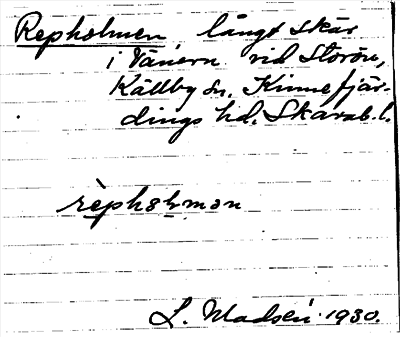 Repholmen långt skär
i Vänern vid Storön,
Källby sn. Kinnefjär-
dings hd. Skarab. l.
rèpholmən
L. Madsén 1930.